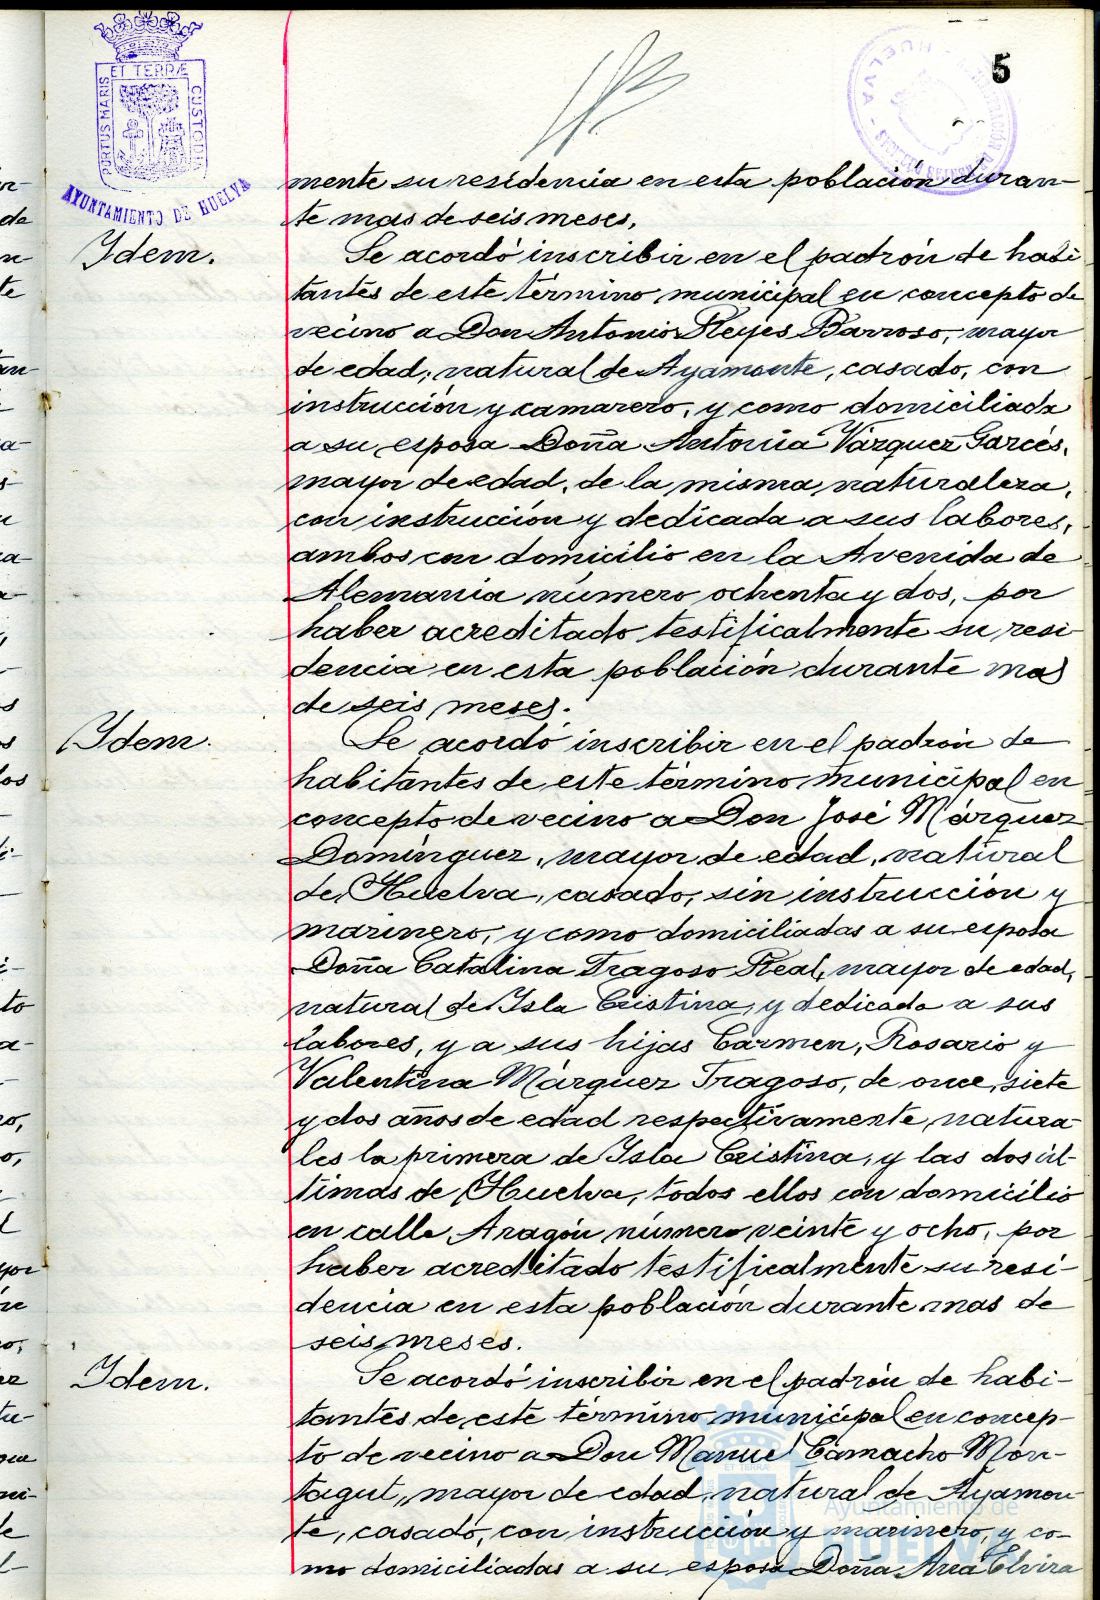 5
PORTUS MARIS
ET TERRÆ
CUSTODIA
AYUNTAMIENTO DE HUELVA
HUELVA
mente su residencia en esta población duran-
te mas de seis meses.
Idem.
Se acordó inscribir en el padrón de habi-
tantes de este término municipal en concepto de
vecino a Don Antonio Reyes Barroso, mayor
de edad, natural de Ayamonte, casado, con
instrucción y camarero, y como domiciliada
a su esposa Doña Antonia Vázquez Garcés,
mayor de edad, de la misma naturaleza,
con instrucción y dedicada a sus labores,
ambos con domicilio en la Avenida de
Alemania número ochenta y dos, por
haber acreditado testificalmente su resi-
dencia en esta población durante mas
de seis meses.
Idem.
Se acordó inscribir en el padrón de
habitantes de este término municipal en
concepto de vecino a Don José Márquez
Domínguez, mayor de edad, natural
de Huelva, casado, sin instrucción y
marinero, y como domiciliadas a su esposa
Doña Catalina Fragoso Real, mayor de edad,
natural de Isla Cristina, y dedicada a sus
labores, y a sus hijas Carmen, Rosario y
Valentina Márquez Fragoso, de once, siete
y dos años de edad respectivamente, natura-
les la primera de Isla Cristina, y las dos úl-
timas de Huelva, todos ellos con domicilio
en calle Aragón número veinte y ocho, por
haber acreditado testificalmente su resi-
dencia en esta población durante mas de
seis meses.
Idem.
Se acordó inscribir en el padrón de habi-
tantes de este término municipal en concep-
to de vecino a Don Manuel Camacho Mon-
tagut, mayor de edad, natural de Ayamon-
te, casado, con instrucción y marinero, y co-
mo domiciliadas a su esposa Doña Ana Elvira
Ayuntamiento de
HUELVA